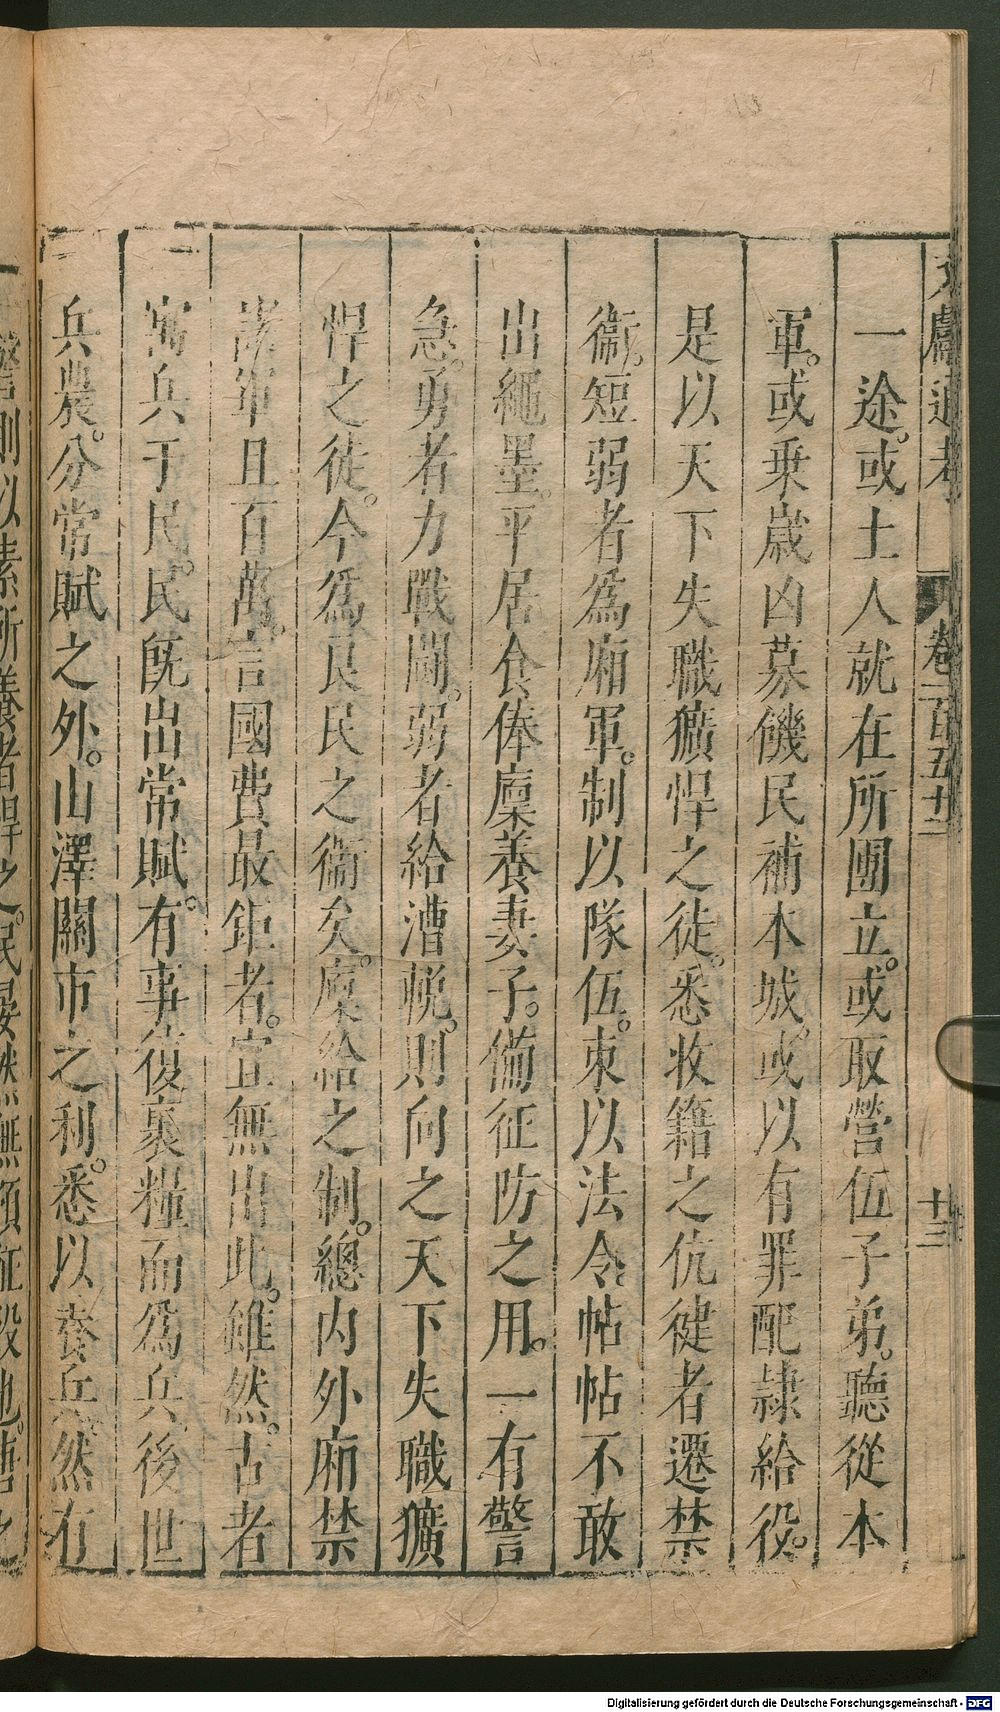 文獻通考 卷一百五十二 十三
一途。或土人就在所團立。或取營伍子弟。聽從本
軍。或乗歲凶募饑民補本城。或以有罪配隷給役。
是以天下失職獷悍之徒。悉收籍之伉徤者遷禁
衞。短弱者為廂軍。制以隊伍。束以法令帖帖不敢
出繩墨。平居食俸廩養妻子。偹征防之用。一有警
急。勇者力戰鬪。弱者給漕輓。則向之天下失職獷
悍之徒。今爲良民之衞矣。廩給之制。總内外廂禁
諸軍且百萬。言國費最鉅者。宜無出此。雖然。古者
寓兵于民。民旣出常賦。有事復裹糧而爲兵。後世
兵農。分常賦之外。山澤關市之利。悉以養兵。然有
則以素所養者捍之。民晏然無預征役也。
Digitalisierung gefördert durch die Deutsche Forschungsgemeinschaft - DFG